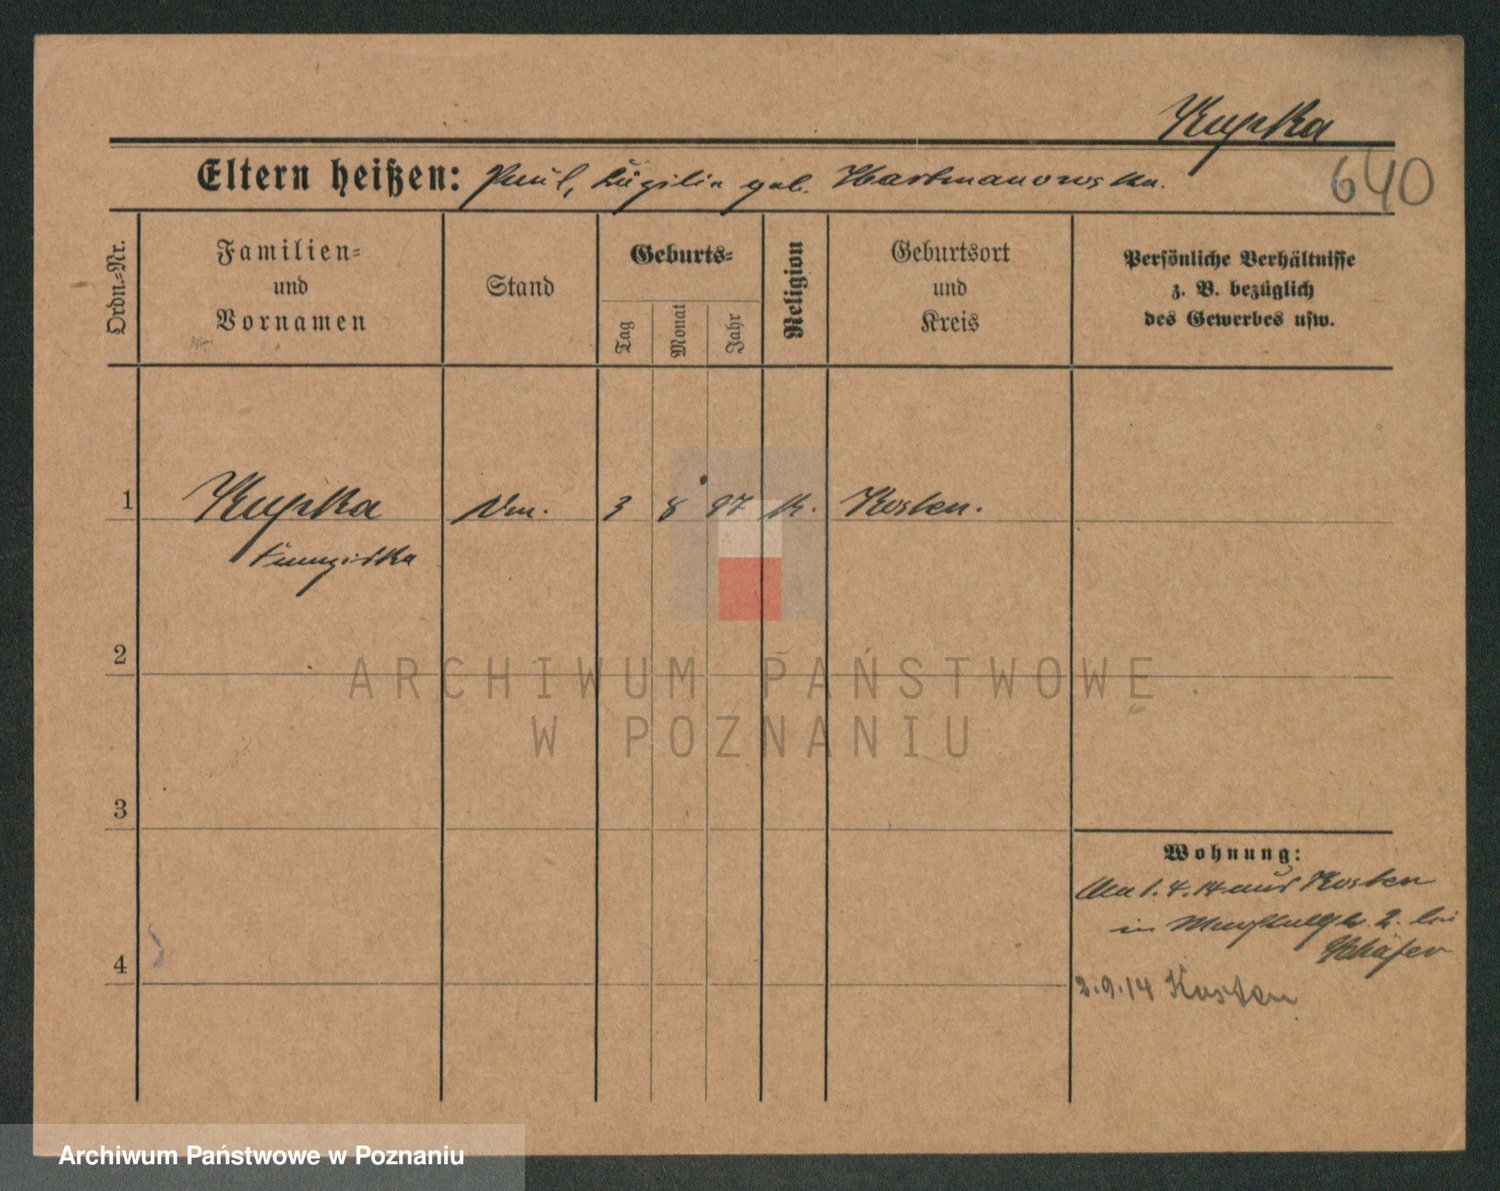 Kupka
640
Eltern heißen: Paul, geb. Hartmanowska.
Ordn.-Nr.
Familien-
und
Vornamen
Stand
Geburts-
Tag
Monat
Jahr
Religion
Geburtsort
und
Kreis
Persönliche Verhältnisse
z. B. bezüglich
des Gewerbes usw.
1
Kupka
3
8
97
k.
Kosten.
Franziska
2
ARCHIWUM PAŃSTWOWE
W POZNANIU
3
Wohnung:
1.4.14 aus Kosten
in 2. bei
Schäfer
4
2.9.14 Kosten
Archiwum Państwowe w Poznaniu